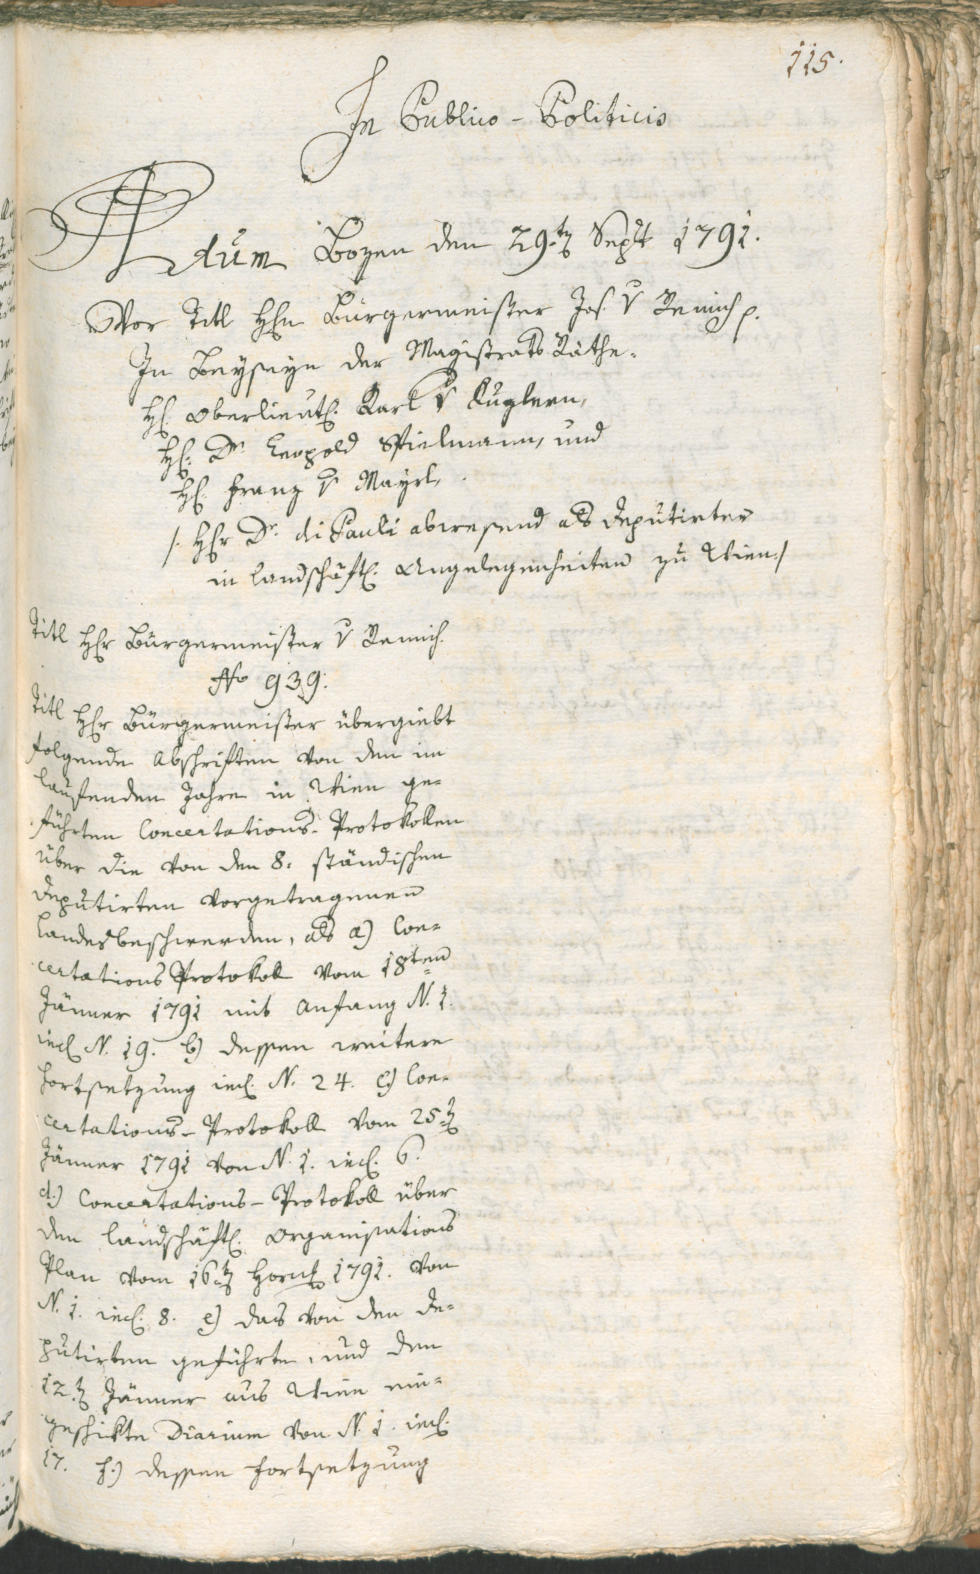 115.
In Publico-Politicis
Actum Bozen den 29.t. Sept 1791.
Vor Titl Hhn Bürgermeister Jos. v Remich p.
In Beyseyn der Magistrats Räthe.
H. Oberlieut. Karl v Kuglern,
H. Dr. Leopold Spielmann, und
H. Franz v Mayrl,
/. Hhr Dr. di Pauli abwesend als deputirter
in landschäftl. Angelegenheiten zu Wien ./
Titl Hhr Bürgermeister v Remich.
No 939.
Titl Hhr Bürgermeister übergiebt
folgende Abschriften von den im
laufenden Jahre in Wien ge-
führten Concertations-Protokollen
über die von den 8. ständischen
deputirten vorgetragenen
Landesbeschwerden, als a) Con-
certations Protokoll vom 18ten
Jänner 1791 mit Anfang N. 1.
incl N. 19. b) dessen weitere
Fortsetzung incl. N. 24. c) Con-
certations-Protokoll vom 25.t
Jänner 1791 von N. 1. incl. 6.
d.) Concertations-Protokoll über
den landschäftl. Organisations
Plan vom 16t Hornl 1791. von
N. 1. incl. 8. e) das von den de-
putirten geführte, und den
12.t Jänner aus Wien ein-
geschickte Diarium von N. 1. incl.
17. f.) dessen Fortsetzung